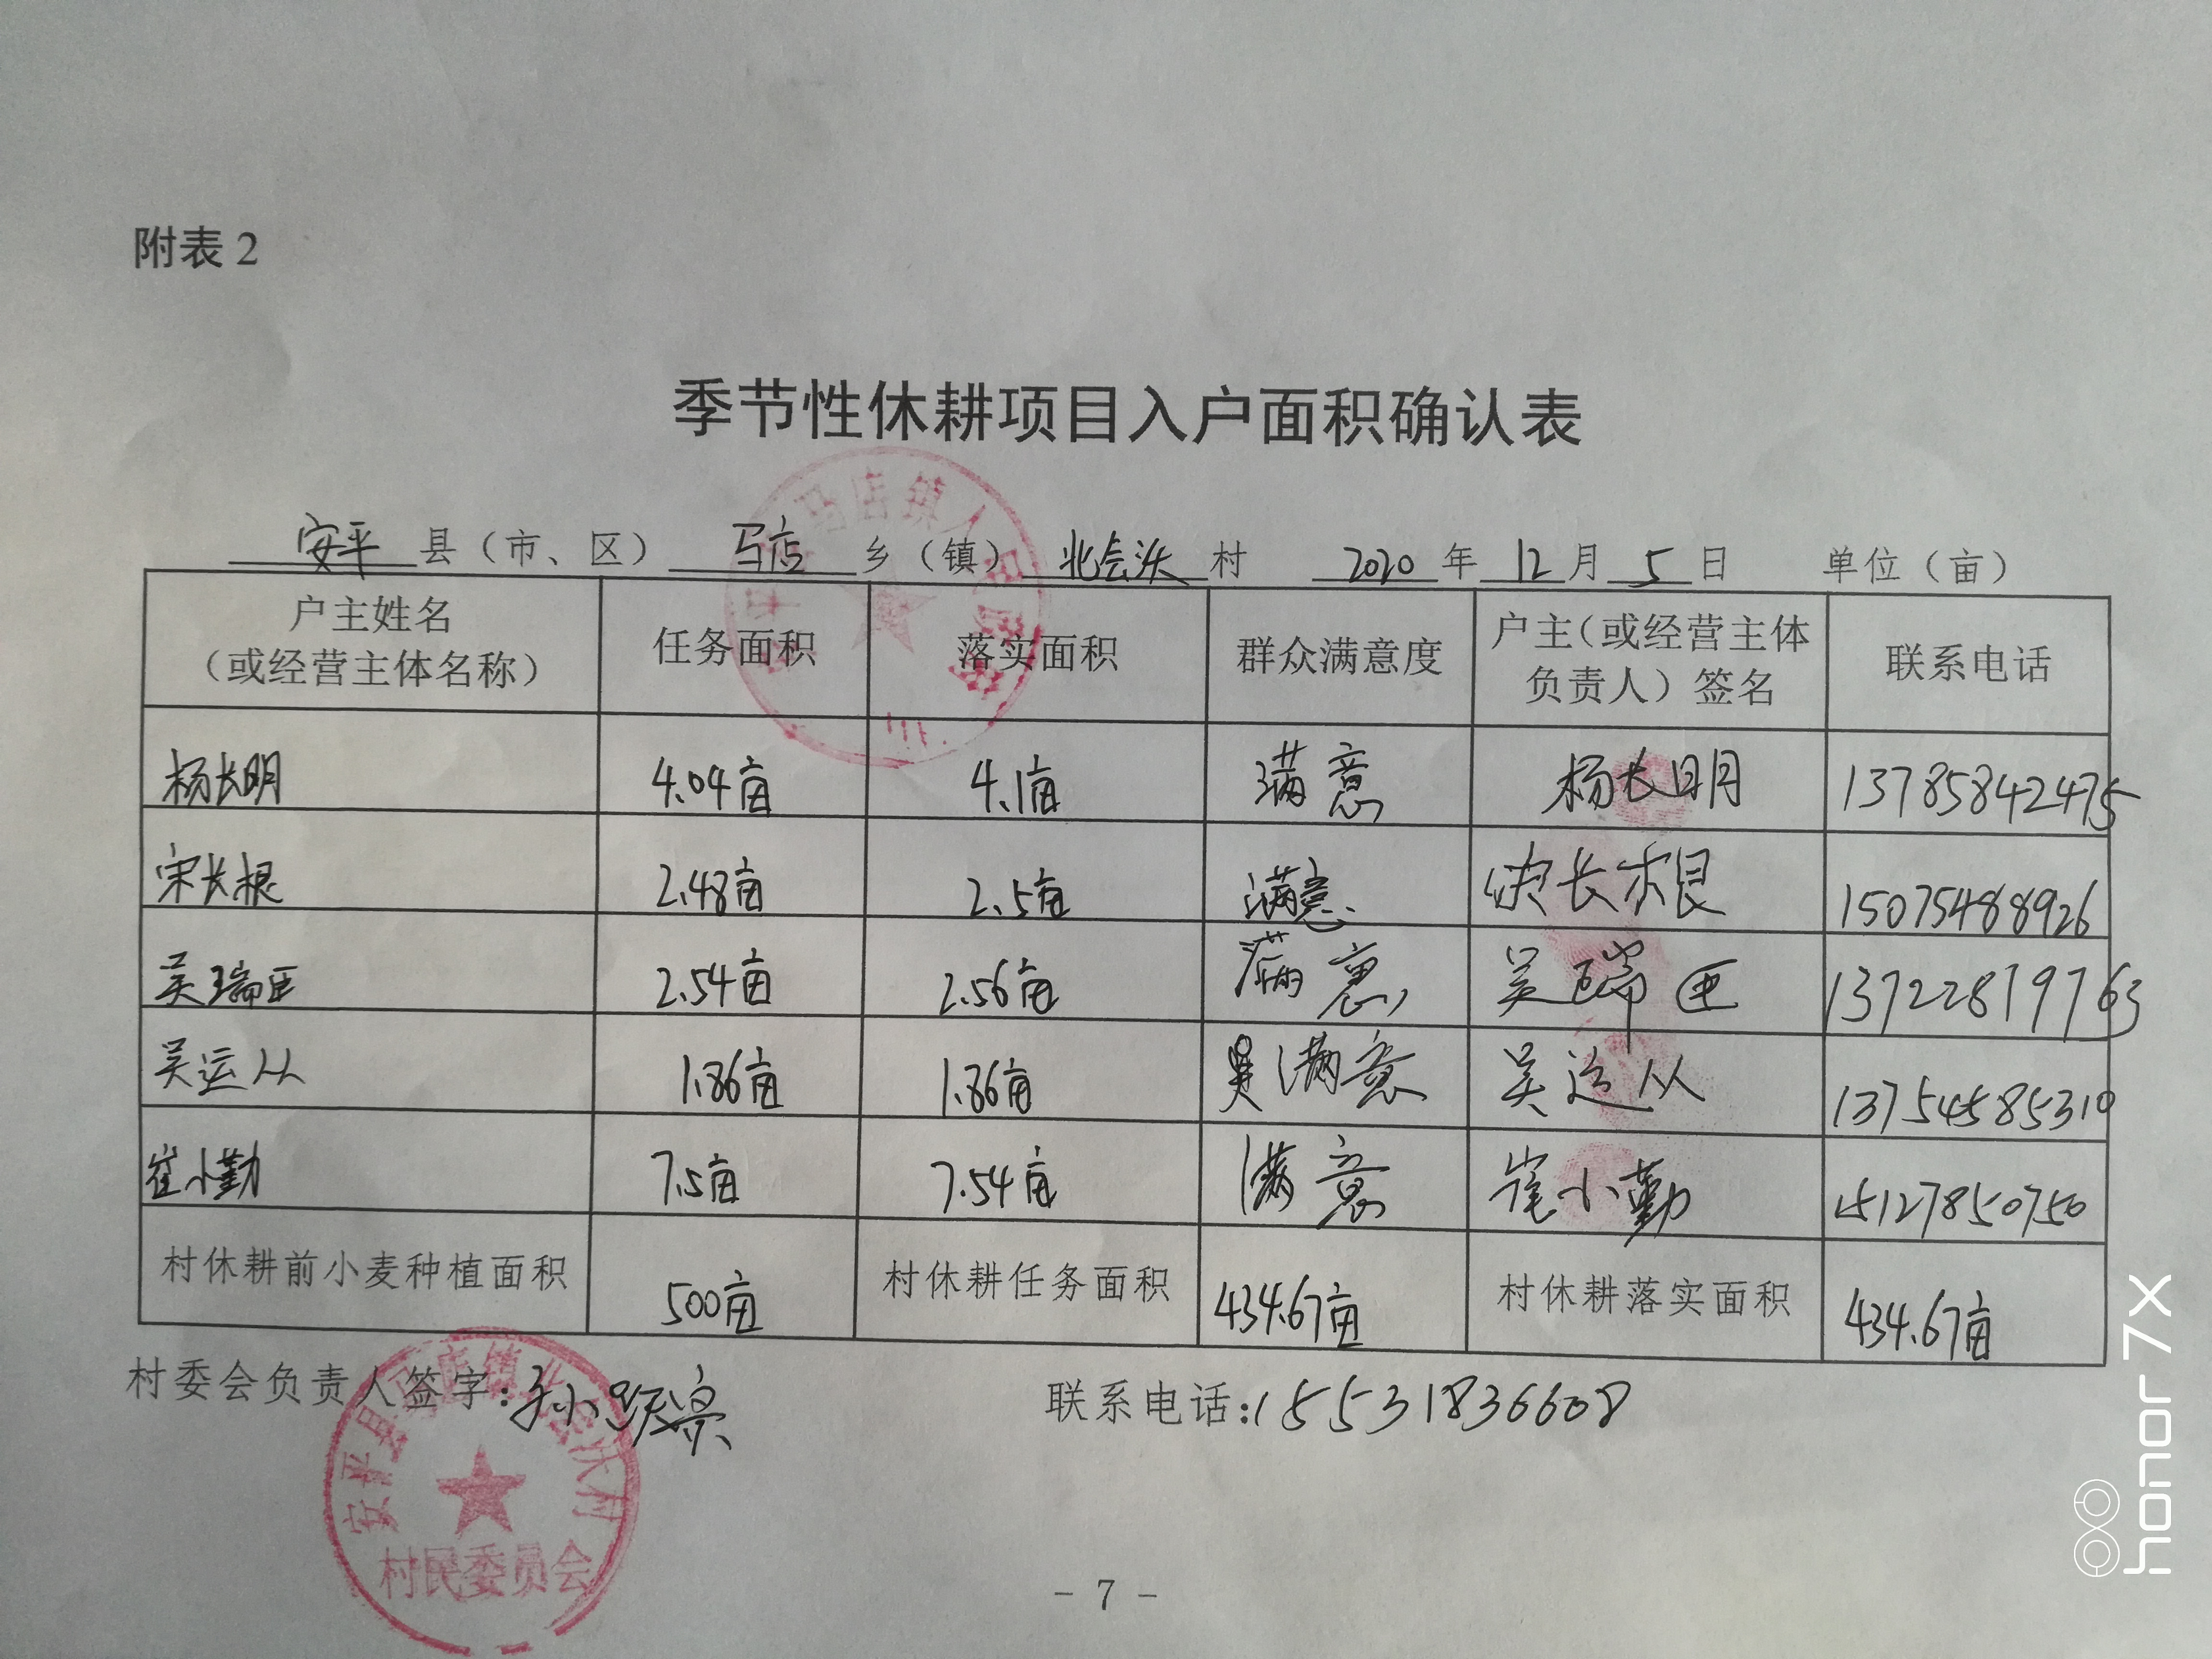 附表2
季节性休耕项目入户面积确认表
安平县（市、区）马店乡（镇）北会沃村 2020年12月5日 单位（亩）
户主姓名（或经营主体名称） 任务面积 落实面积 群众满意度 户主（或经营主体负责人）签名 联系电话
杨长明 4.04亩 4.1亩 满意 杨长明 13785842475
宋长根 2.48亩 2.5亩 满意 宋长根 15075488926
吴瑞 2.54亩 2.56亩 满意 吴瑞 13722819763
吴运从 1.86亩 1.86亩 满意 吴运从 13754585310
崔小勤 7.5亩 7.54亩 满意 崔小勤 15127850750
村休耕前小麦种植面积 500亩 村休耕任务面积 434.67亩 村休耕落实面积 434.67亩
村委会负责人签字： 联系电话：15531836608
村民委员会
- 7 -
honor 7X